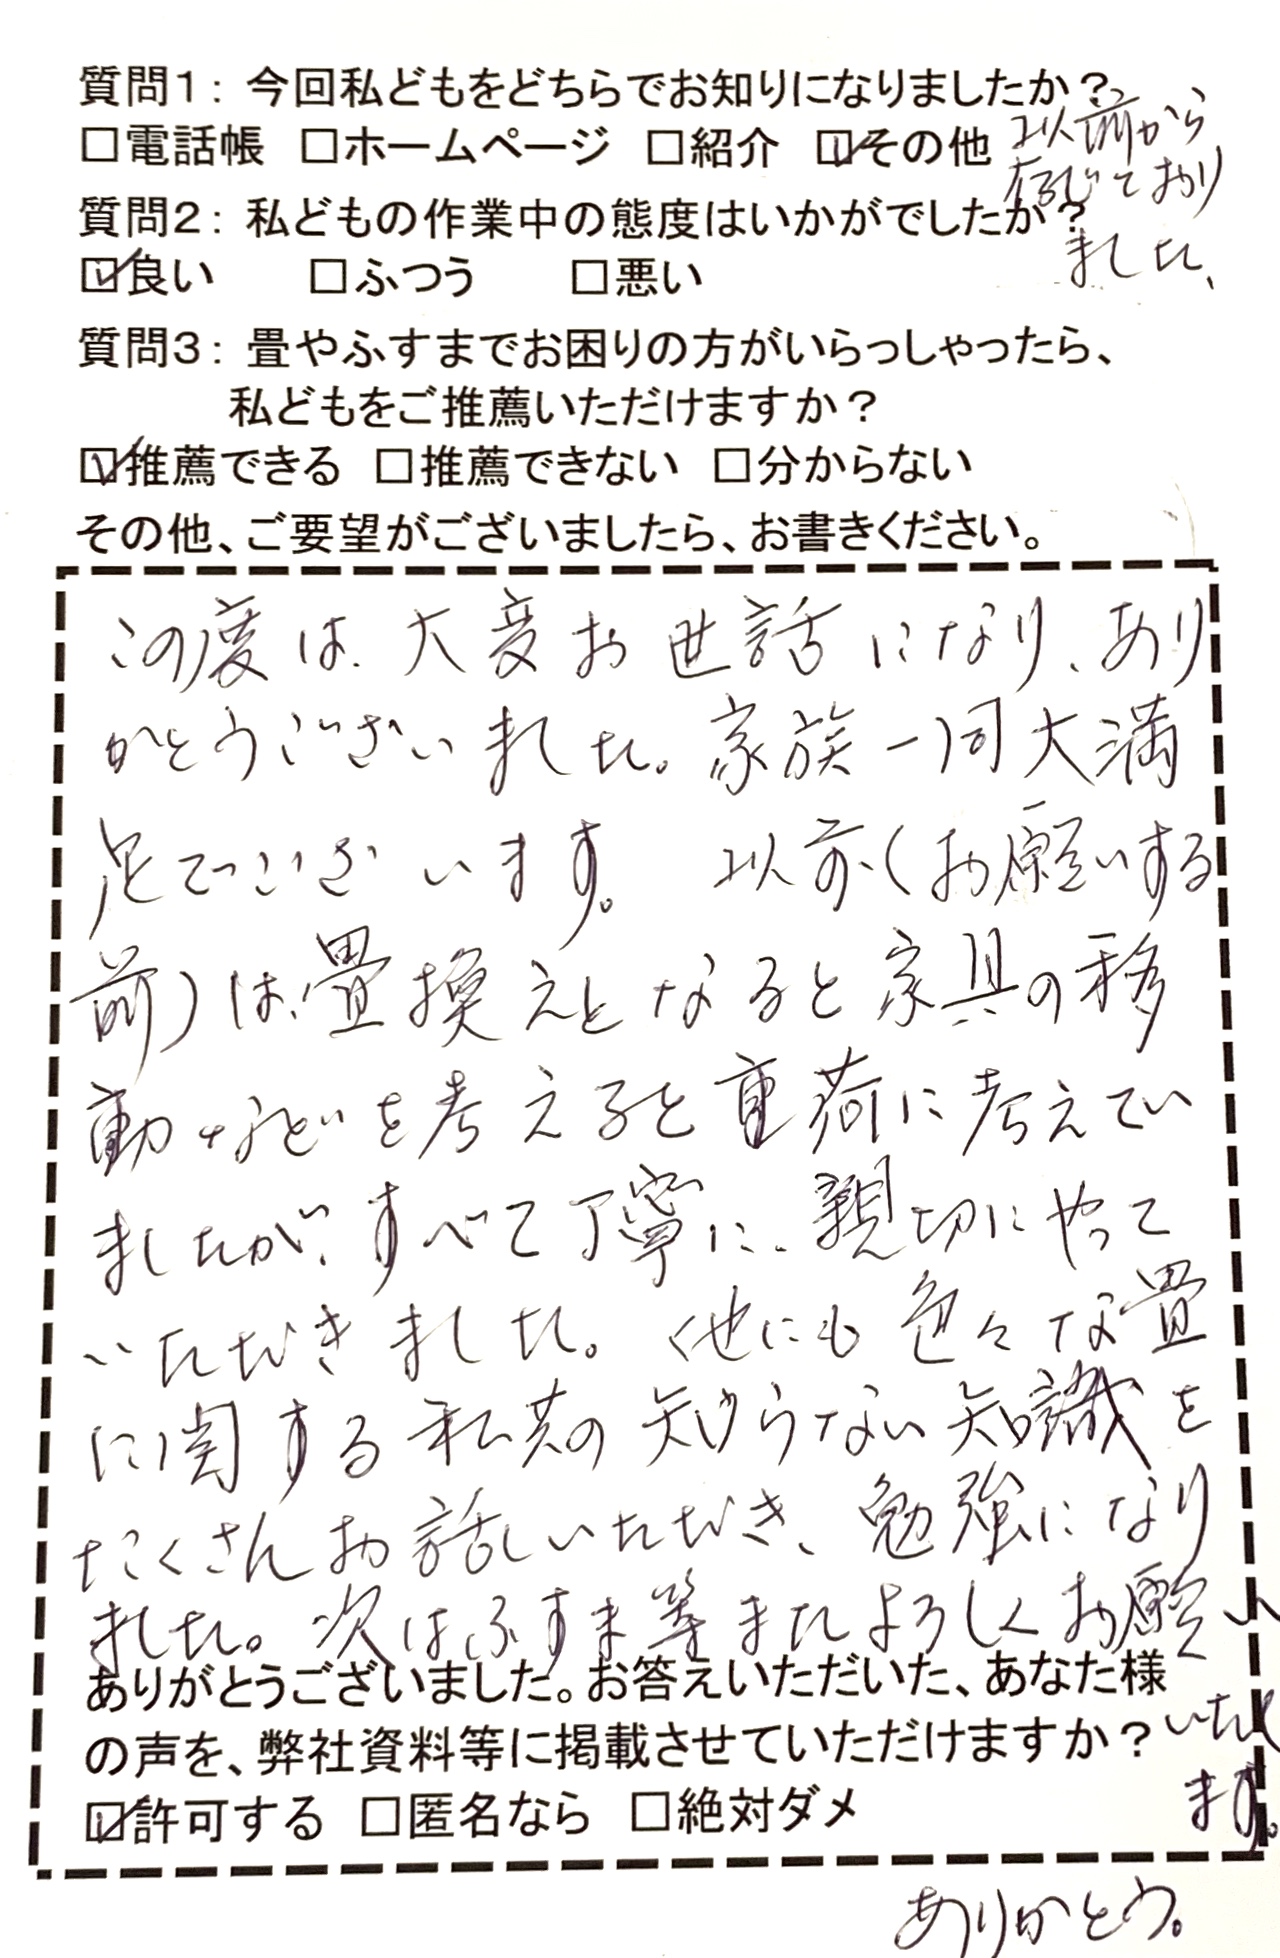 質問1：今回私どもをどちらでお知りになりましたか？
□電話帳 □ホームページ □紹介 ☑その他
以前から
存じており
ました、
質問2：私どもの作業中の態度はいかがでしたか？
☑良い □ふつう □悪い
質問3：畳やふすまでお困りの方がいらっしゃったら、
私どもをご推薦いただけますか？
☑推薦できる □推薦できない □分からない
その他、ご要望がございましたら、お書きください。
この度は、大変お世話になり、あり
がとうございました。家族一同大満
足でございます。 以前(お願いする
前)は、畳換えとなると家具の移
動などを考えると重荷に考えてい
ましたが、すべて丁寧に、親切にやって
いただきました。他にも色々な畳
に関する私共の知らない知識を
たくさんお話しいただき、勉強になり
ました。次はふすま等またよろしくお願い
いたし
ます。
ありがとうございました。お答えいただいた、あなた様
の声を、弊社資料等に掲載させていただけますか？
☑許可する □匿名なら □絶対ダメ
ありがとう。